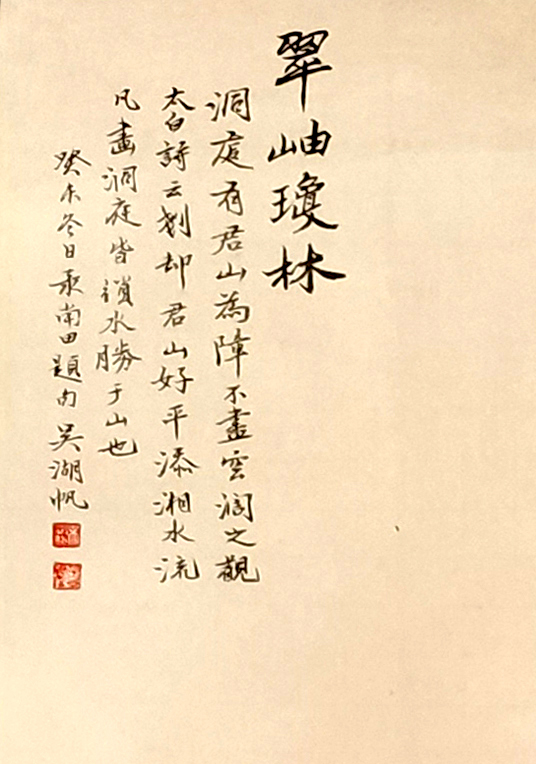 翠岫瓊林
洞庭有君山為障不盡空闊之觀
太白詩云剗却君山好平添湘水流
凡畫洞庭皆須水勝于山也
癸未冬日录南田題句吳湖帆